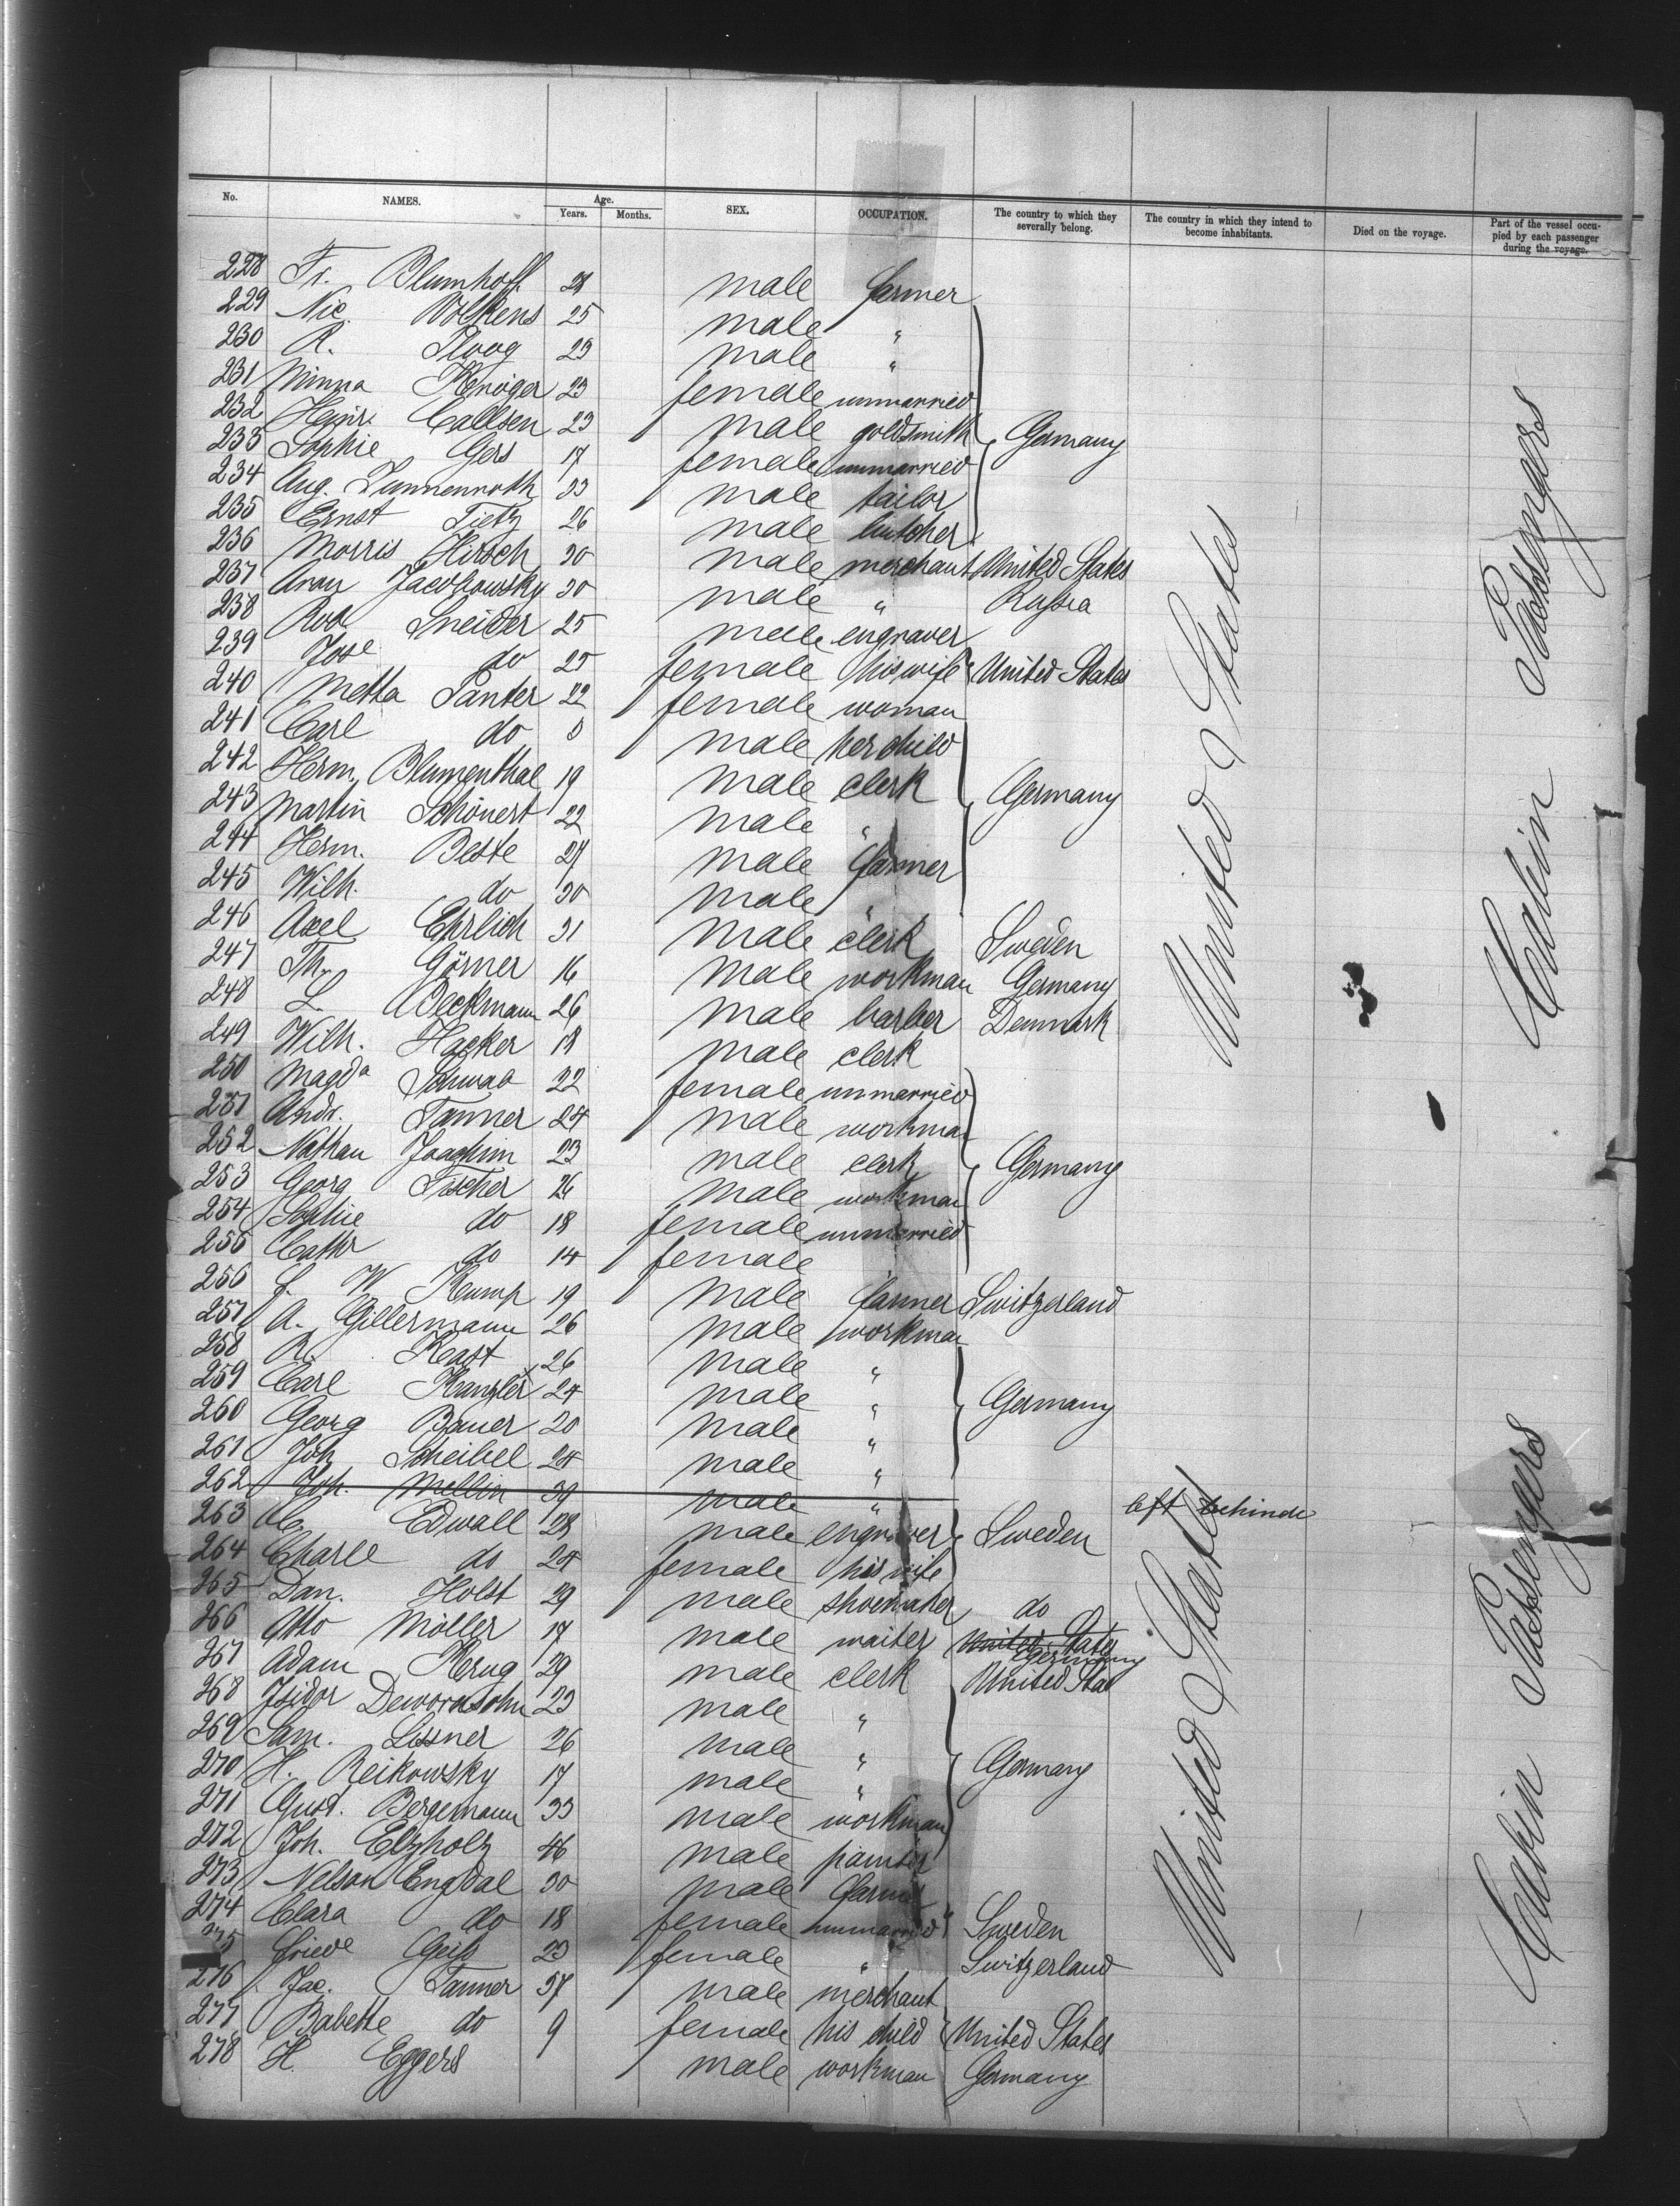 No. NAMES. Age. Years. Months. SEX. OCCUPATION. The country to which they severally belong. The country in which they intend to become inhabitants. Died on the voyage. Part of the vessel occupied by each passenger during the voyage.
228 Fr. Blumhoff male farmer
229 Nic. Volkens 25 male "
230 R. Ploog 23 male "
231 Minna Kröger 23 female unmarried
232 Heinr. Callsen 23 male goldsmith Germany
233 Sophie Gers 17 female unmarried
234 Aug. Lunnenroth 33 male tailor
235 Ernst Tietz 26 male butcher
236 Morris Hirsch 30 male merchant United States
237 Jacobowsky 30 male " Russia
238 Rob. Sneider 25 male engraver
239 Jose do 25 female his wife United States
240 Metta Panter 22 female woman
241 Carl do male her child
242 Herm. Blumenthal 19 male clerk Germany
243 Martin Schönert 22 male "
244 Herm. Beste 27 male farmer
245 Wilh. do 30 male "
246 Axel Ehrlich 31 male clerk Sweden
247 Th. Görner 16 male workman Germany
248 L. Weckmann 26 male barber Denmark
249 Wilh. Hacker 18 male clerk
250 Magda Schwab 22 female unmarried
251 Andr. Tanner 24 male workman
252 Nathan Joachim 23 male clerk Germany
253 Georg Fischer 26 male workman
254 Sophie do 18 female unmarried
255 Cathr do 14 female
256 W. Kump 19 male farmer Switzerland
257 A. Gillermann 26 male workman
258 R. Kast 26 male "
259 Carl Kanzler 24 male " Germany
260 Georg Bauer 20 male "
261 Joh. Scheibel 24 male "
262 Joh. Mellin 39 male " left behinde
263 Edwall 28 male engraver Sweden
264 Charl do 24 female his wife
265 Dan. Holst 29 male shoemaker do
266 Otto Möller 17 male waiter United States Germany
267 Adam Krug 29 male clerk United Stat
268 Isidor Deworasohn 23 male "
269 Sam. Lissner 26 male "
270 H. Reikowsky 17 male " Germany
271 Gust. Bergemann 33 male workman
272 Joh. Elzholz 46 male painter
273 Nelson Engdal 30 male farmer
274 Clara do 18 female unmarried Sweden
275 Friede Geiß 23 female " Switzerland
276 Jac. Tanner 57 male merchant
277 Babette do 9 female his child United States
278 H Eggers male workman Germany
United States
United States
Cabin Passengers
Cabin Passengers